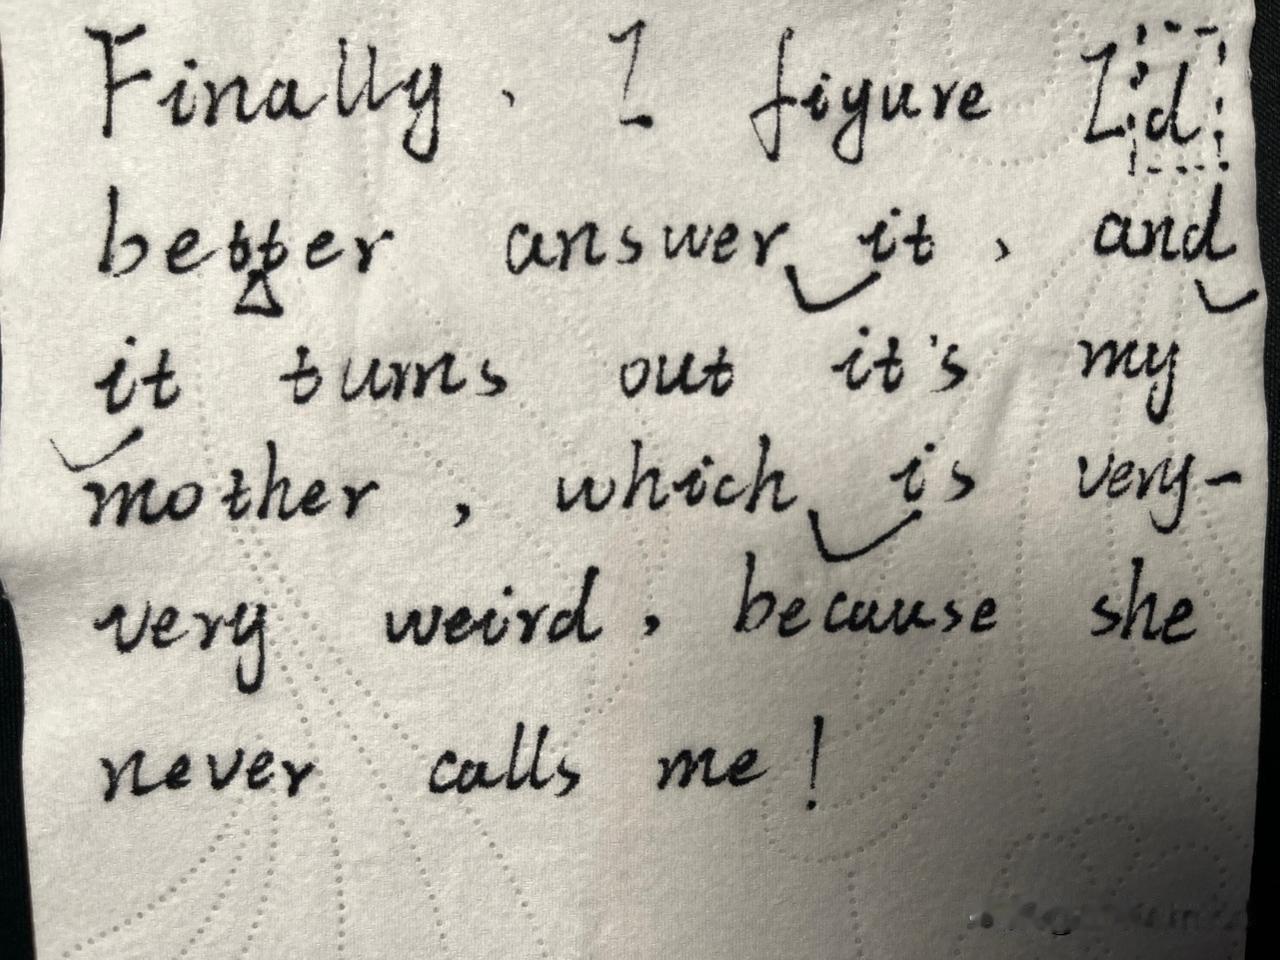 Finally, I figure I'd
better answer it, and
it turns out it's my
mother, which is very-
very weird, because she
never calls me!